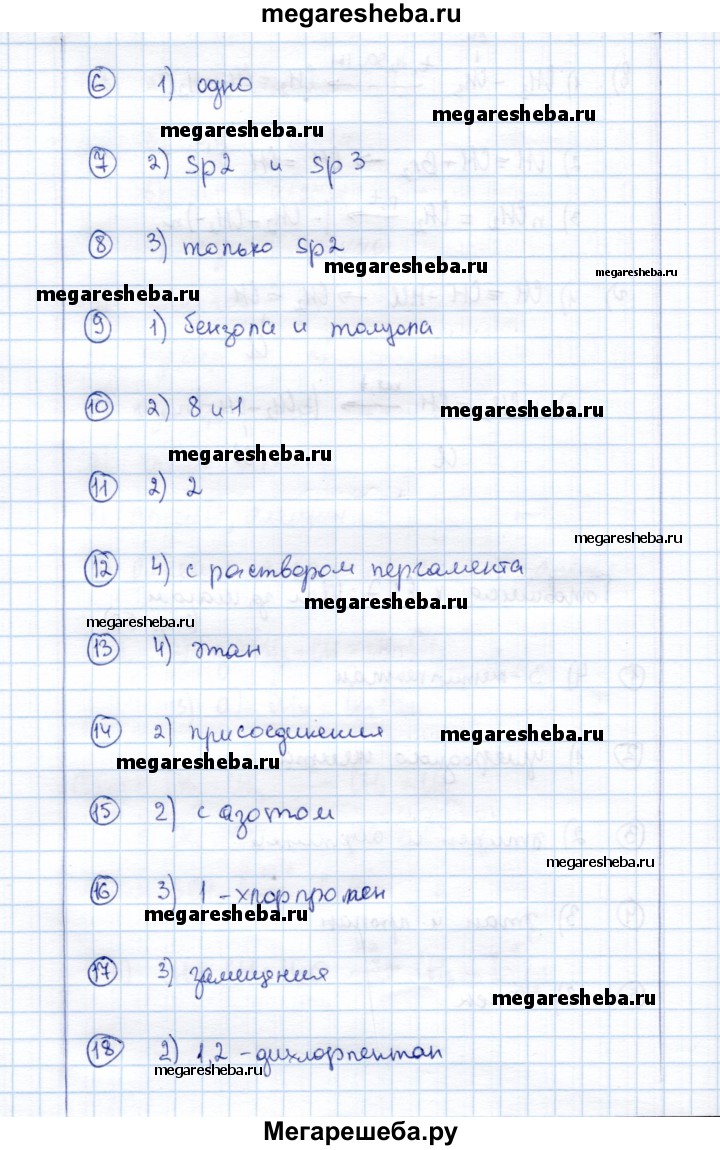 megaresheba.ru
6 1) одно
megaresheba.ru
megaresheba.ru
7 2) sp2 и sp3
8 3) только sp2
megaresheba.ru
megaresheba.ru
megaresheba.ru
9 1) бензола и толуола
10 2) 8 и 1
megaresheba.ru
megaresheba.ru
11 2) 2
megaresheba.ru
12 4) с раствором пергамента
megaresheba.ru
megaresheba.ru
13 4) этан
14 2) присоединения
megaresheba.ru
megaresheba.ru
15 2) с азотом
megaresheba.ru
16 3) 1-хлорпропен
megaresheba.ru
17 3) замещения
megaresheba.ru
18 2) 1,2-дихлорпентан
megaresheba.ru
Мегарешеба.ру